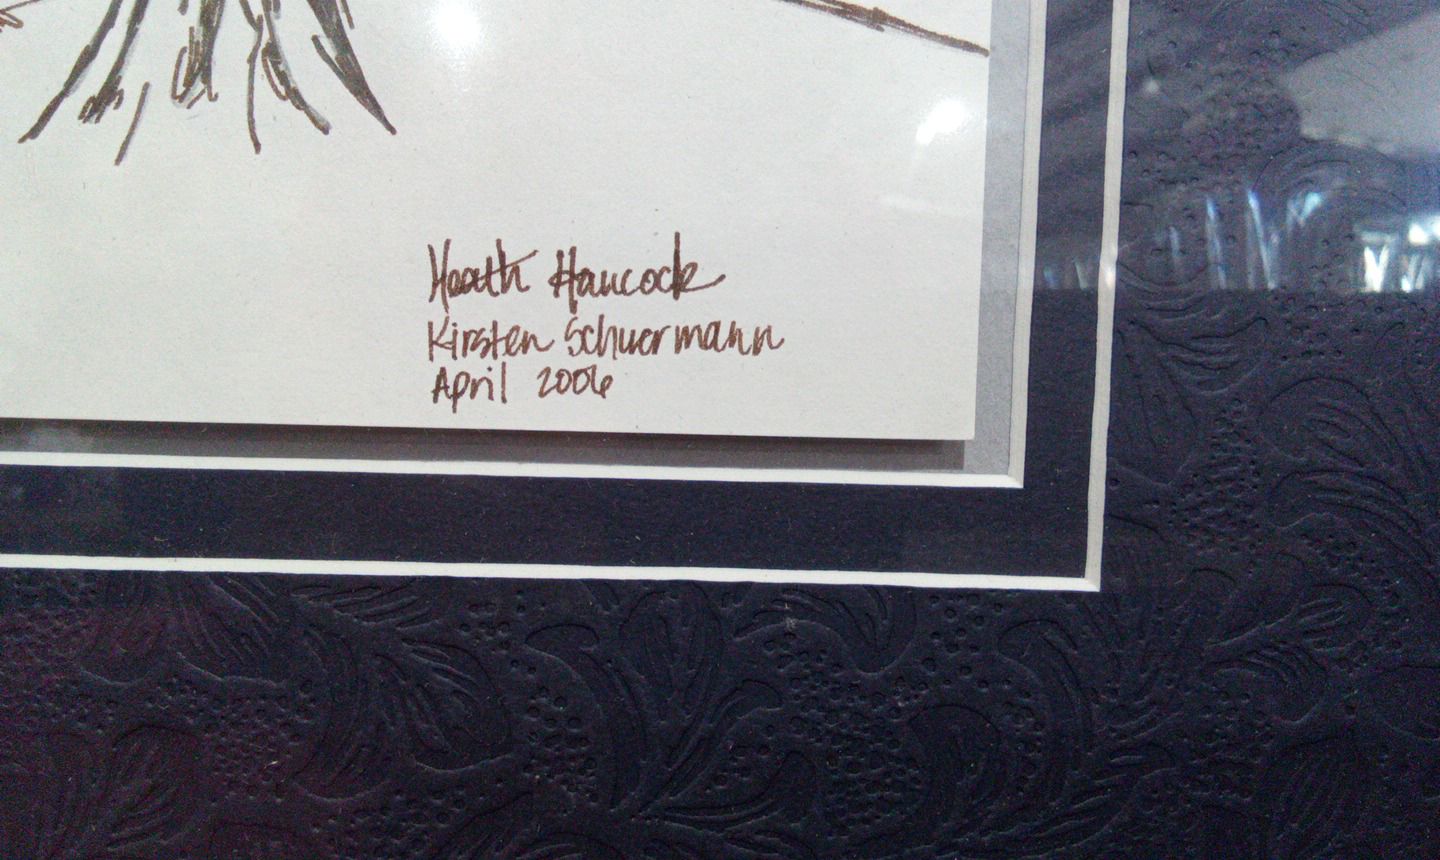 Heath Hancock
Kirsten Schuermann
April 2006